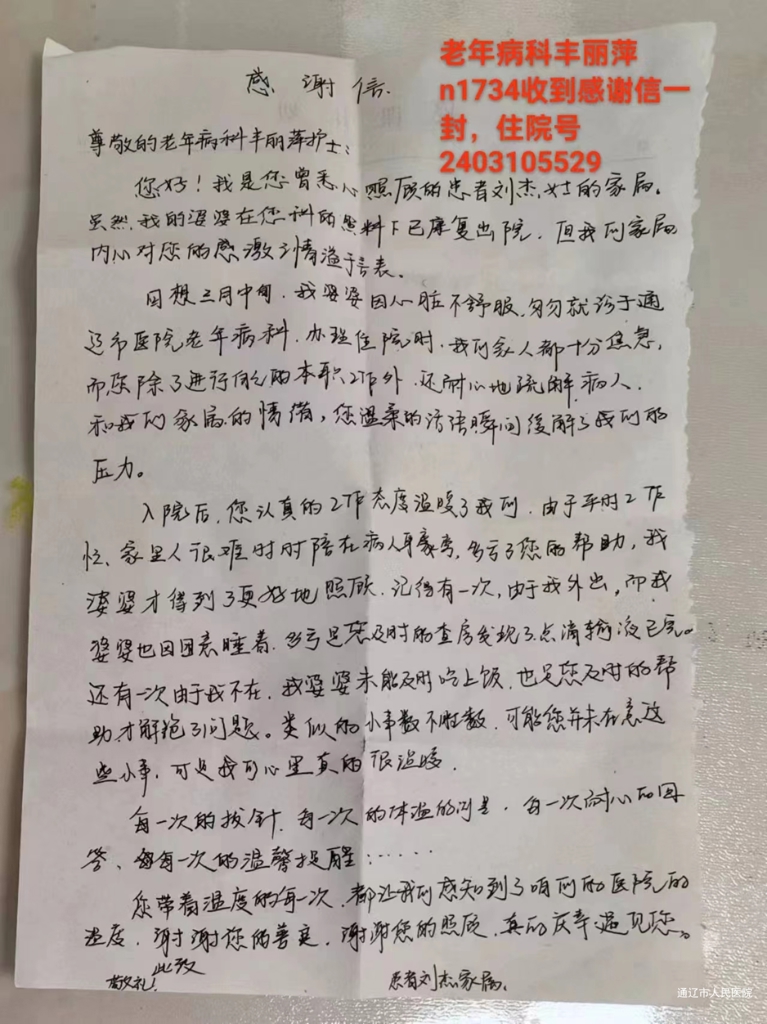 老年病科丰丽萍
n1734收到感谢信一
封，住院号
2403105529
感谢信
尊敬的老年病科丰丽萍护士：
您好！我是您曾悉心照顾的患者刘杰女士的家属。
虽然我的婆婆在您科的照料下已康复出院，但我们家属
内心对您的感激之情溢于言表。
回想三月中旬，我婆婆因心脏不舒服，匆匆就诊于通
辽市医院老年病科，办理住院时，我们家人都十分焦急，
而您除了进行自己的本职工作外，还耐心地疏解病人
和我们家属的情绪，您温柔的话语瞬间缓解了我们的
压力。
入院后，您认真的工作态度温暖了我们，由于平时工作
忙，家里人很难时时陪在病人身旁，多亏了您的帮助，我
婆婆才得到了更好地照顾。记得有一次，由于我外出，而我
婆婆也因困意睡着，多亏是您及时的查房发现了点滴输液已完。
还有一次由于我不在，我婆婆未能及时吃上饭，也是您及时的帮
助才解绝了问题。类似的小事数不胜数，可能您并未在意这
些小事，可是我们心里真的很温暖。
每一次的拔针，每一次的体温的测量，每一次耐心的回
答，每一次的温馨提醒……
您带着温度的每一次，都让我们感知到了咱们的医院的
温度，谢谢您的善良，谢谢您的照顾，真的庆幸遇见您。
此致
敬礼！
患者刘杰家属。
通辽市人民医院